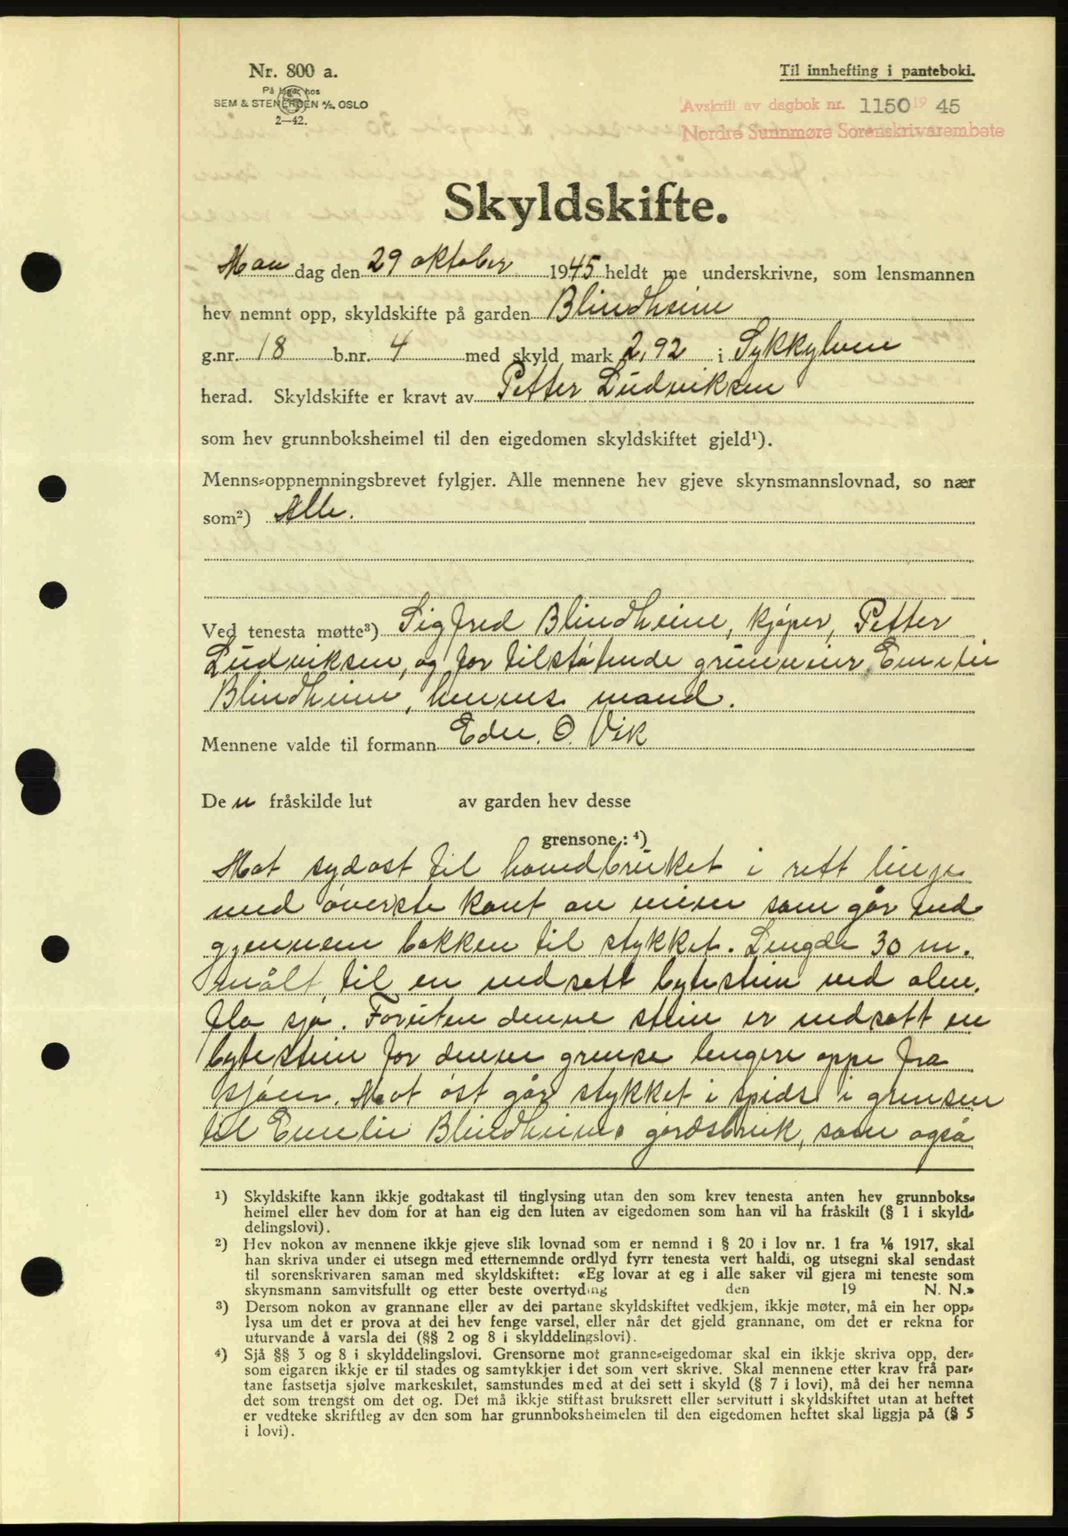 Nr. 800 a.
På lager hos
SEM & STENERSEN A/S, OSLO
2—42.
Til innhefting i panteboki.
Avskrift av dagbok nr. 1150 1945
Nordre Sunnmøre Sorenskrivarembete
Skyldskifte.
Man dag den 29 oktober 1945 heldt me underskrivne, som lensmannen
hev nemnt opp, skyldskifte på garden Blindheim
g.nr. 18 b.nr. 4 med skyld mark 2,92 i Sykkylven
herad. Skyldskifte er kravt av Petter Ludviksen
som hev grunnboksheimel til den eigedomen skyldskiftet gjeld¹).
Menns-oppnemningsbrevet fylgjer. Alle mennene hev gjeve skynsmannslovnad, so nær
som²) Alle.
Ved tenesta møtte³) Sigfred Blindheim, kjøper, Petter
Ludviksen, og for tilstøtende grunneier Emelie
Blindheim, hennes mand.
Mennene valde til formann O. Vik
De n fråskilde lut av garden hev desse
grensone: ⁴)
Mot sydost til hovedbruket i rett linje
med øverste kant av veien som går ned
gjennem bakken til stykket. Lengde 30 m.
målt til en nedsatt bytestein ved alm.
flo sjø. Foruten denne stein er nedsatt en
bytestein for denne grense lengere oppe fra
sjøen. Mot øst går stykket i spids i grensen
til Emelie Blindheims gårdsbruk, som også
¹) Skyldskifte kann ikkje godtakast til tinglysing utan den som krev tenesta anten hev grunnboks-
heimel eller hev dom for at han eig den luten av eigedomen som han vil ha fråskilt (§ 1 i skyld-
delingslovi).
²) Hev nokon av mennene ikkje gjeve slik lovnad som er nemnd i § 20 i lov nr. 1 fra 1/6 1917, skal
han skriva under ei utsegn med etternemnde ordlyd fyrr tenesta vert haldi, og utsegni skal sendast
til sorenskrivaren saman med skyldskiftet: «Eg lovar at eg i alle saker vil gjera mi teneste som
skynsmann samvitsfullt og etter beste overtyding den 19 N. N.»
³) Dersom nokon av grannane eller av dei partane skyldskiftet vedkjem, ikkje møter, må ein her opp-
lysa um det er prova at dei hev fenge varsel, eller når det gjeld grannane, om det er rekna for
uturvande å varsla dei (§§ 2 og 8 i skylddelingslovi).
⁴) Sjå §§ 3 og 8 i skylddelingslovi. Grensorne mot granne-eigedomar skal ein ikkje skriva opp, der-
som eigaren ikkje er til stades og samtykkjer i det som vert skrive. Skal mennene etter krav frå par-
tane fastsetja sjølve markeskilet, samstundes med at dei sett i skyld (§ 7 i lovi), må dei her nemna
det som trengst om det og. Det må ikkje stiftast bruksrett eller servitutt i skyldskiftet utan at heftet
er vedteke skriftleg av den som har grunnboksheimelen til den eigedomen heftet skal liggja på (§ 5
i lovi).